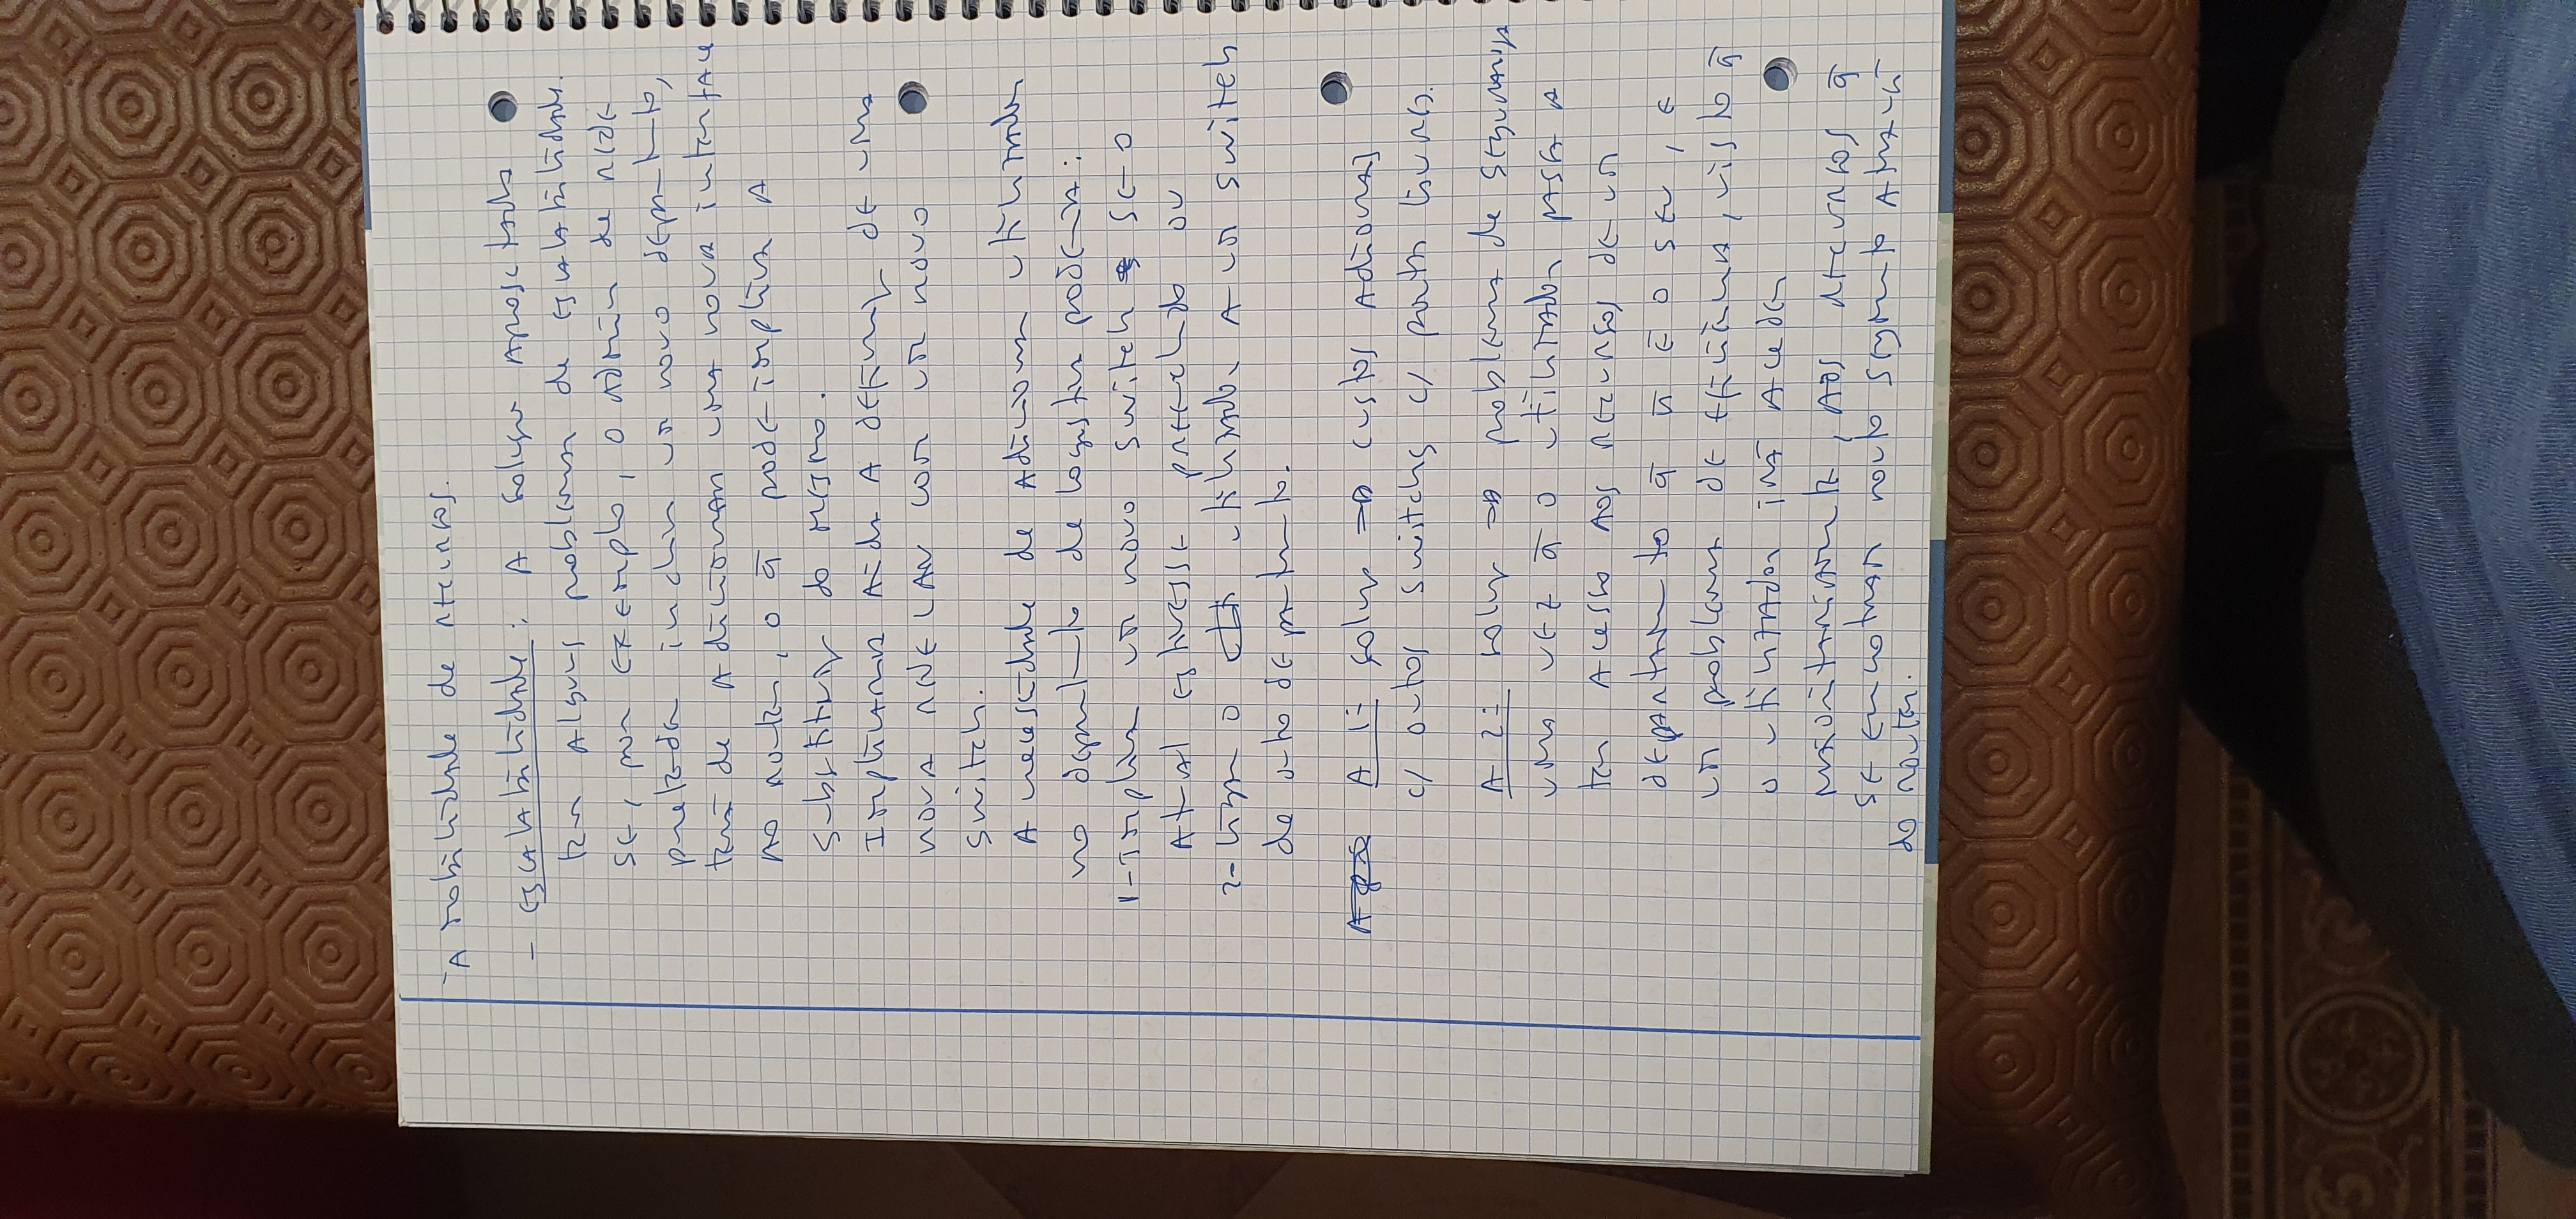 à mobilidade de recursos.
- escalabilidade: A solução aprosetada
tem Alguns problemas de escalabilidade.
se, por exemplo, o admin de rede
pretender incluir um novo departamento,
terá de Adicionar uma nova interface
no router, o q̄ pode implicar A
substituição do mesmo.
Implicaria Ainda A definição de uma
nova rede LAN com um novo
switch.
A necessidade de Adicionar utilizador
no departamento de logística poderia:
1-Implicar um novo switch se o
Atual estivesse preenchido ou
2-ligar o utilizador A um switch
de outro departamento.
A 1ª solução => custos Adionais
c/ outos switchs c/ portas livres.
A 2ª solução => problema de segurança
uma vez q̄ o utilizador passa a
ter Acesso Aos recursos de um
departamento q̄ ñ é o seu, e
um problema de eficiência, visto q̄
o utilizador irá Aceder
maioritariamente, Aos recursos q̄
se encotram nouto segmento Através
do router.